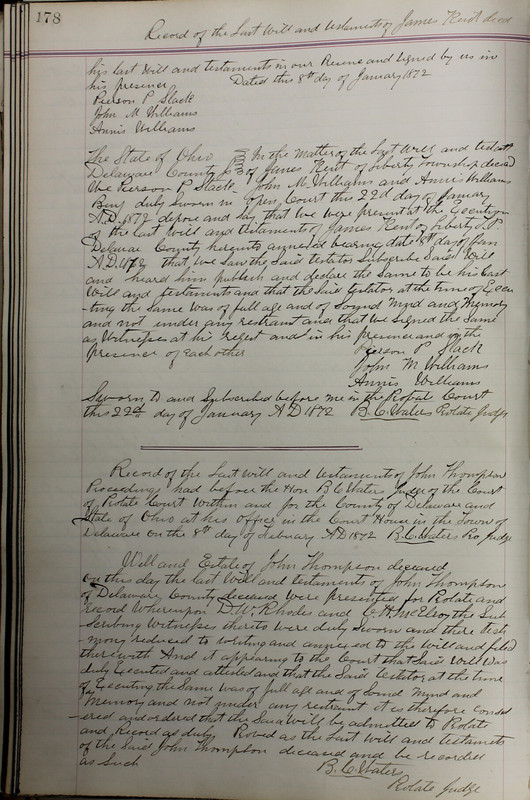 178
Record of the Last Will and Testaments of James Kent decd
his last Will and testaments in our Presence and Signed by us in
his presence Dated this 8th day of January 1872
Pierson P Slack
John M Williams
Annis Williams
The State of Ohio In the Matter of the Last Will and testatt
Delaware County SS of James Kent of Liberty Township deceased
We Pierson P Slack John M Williams and Annis Williams
Being duly Sworn in Open Court this 22d day of January
A.D. 1872 depose and Say that We were present at the Execution
of the last Will and testaments of James Kent of Liberty T.P.
Delaware County hereunto annexed bearing date 8th day of Jan
A.D. 1872 that We Saw the Said testator Subscribe Said Will
and heard him publish and declare the Same to be his Last
Will and testaments and that the Said testator at the time of Execu
-ting the Same was of full age and of Sound Mind and Memory
and not under any restraint and that We Signed the Same
as Witnesses at his request and in his presence and in the
presence of each other
Pierson P Slack
John M Williams
Annis Williams
Sworn to and Subscribed before me in the Probat Court
this 22nd day of January A D 1872 B. C. Waters Probate Judge
Record of the Last Will and testaments of John Thompson
Proceedings had before the Hon B C Waters Judge of the Court
of Probate Court Within and for the County of Delaware and
State of Ohio at his Office in the Court House in the Town of
Delaware on the 8th day of February A.D 1872 B. C. Waters Pro Judge
Will and Estate of John Thompson deceased
On this day the last Will and testaments of John Thompson
of Delaware County deceased were presented for Probate and
Record Whereupon D. W. Rhodes and C. H. McElroy the Sub
scribing Witnesses thereto were duly Sworn and there testi
mony reduced to writing and annexed to the Will and filed
therewith And it appearing to the Court that Said Will Was
duly Executed and attested and that the Said testator at the time
of Executing the Same was of full age and of Sound Mind and
Memory and not under any restraint it is therefore consid
ered and ordered that the Said Will be admitted to Probate
and Record as duly Proved as the Last Will and testaments
of the Said John Thompson deceased and be recorded
as Such B. C. Waters
Probate Judge